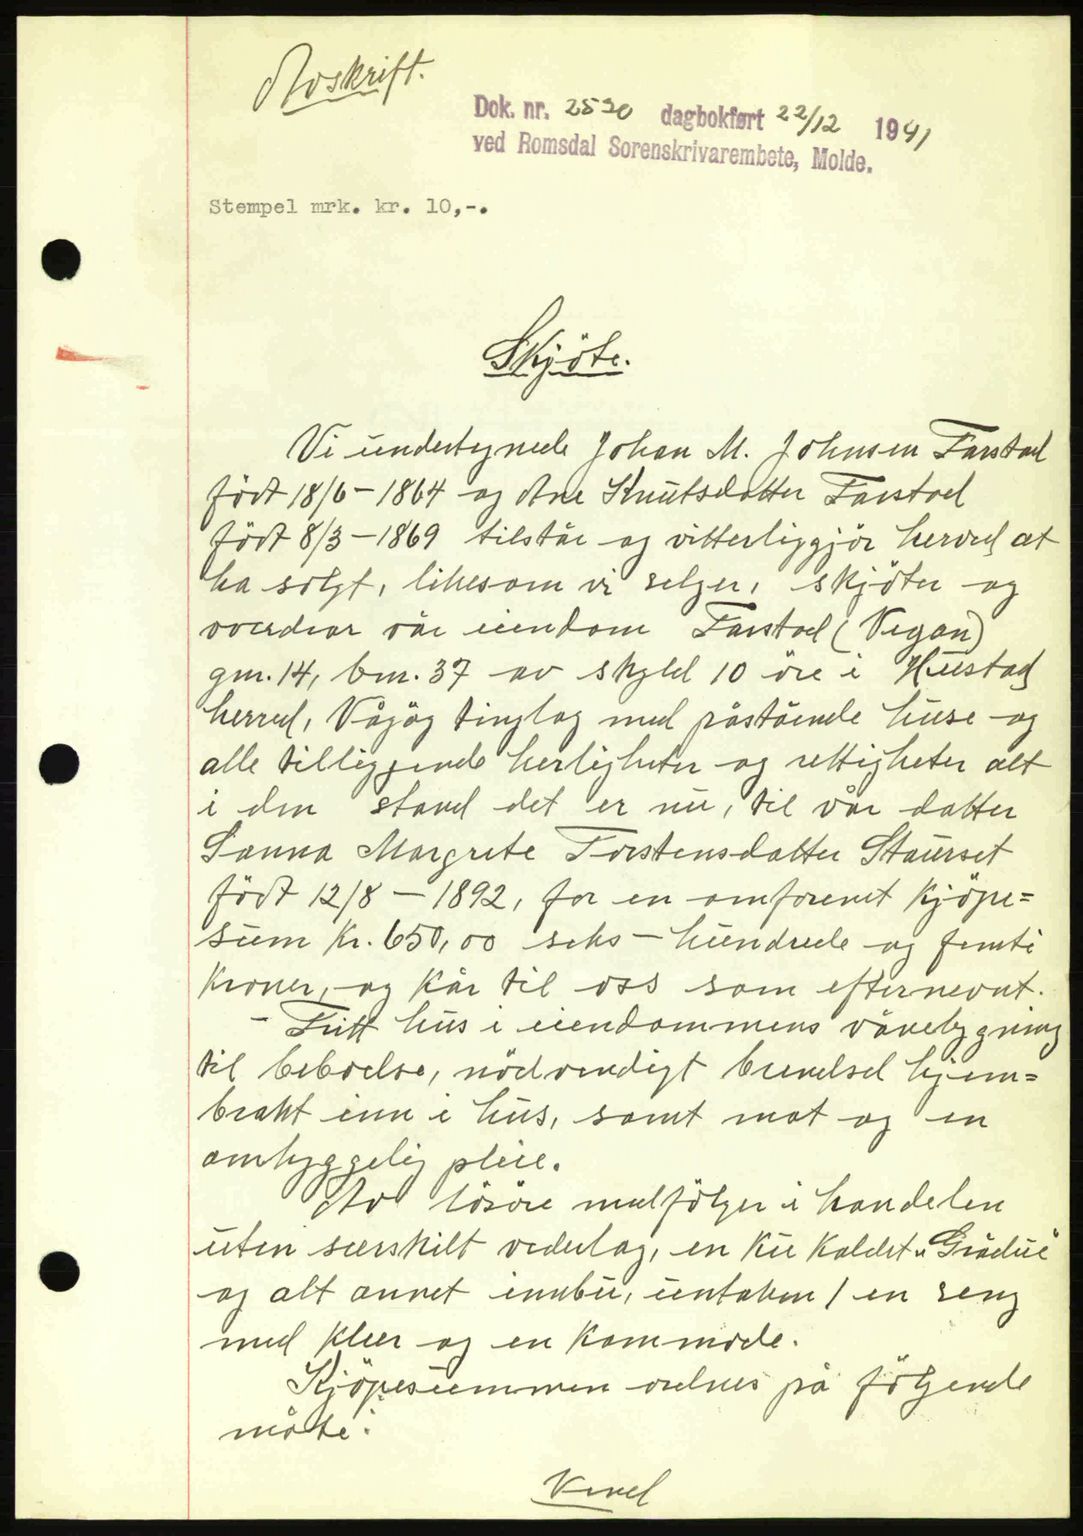 Avskrift.
Dok. nr. 2530 dagbokført 22/12 1941
ved Romsdal Sorenskrivarembete, Molde.
Stempel mrk. kr. 10,-.
Skjöte.
Vi undertegnede Johan M. Johnsen Farstad
född 18/6-1864 og Ane Knutsdatter Farstad
född 8/3-1869 tilstår og vitterliggjör herved at
ha solgt, likesom vi selger, skjöter og
overdrar vår eiendom Farstad (Vegan)
gnr. 14, bnr. 37 av skyld 10 öre i Hustad
herred, Vågöy tinglag med påstående huse og
alle tilliggende herligheter og rettigheter alt
i den stand det er nu, til vår datter
Sanna Margrete Torstensdatter Staurset
född 12/8 - 1892, for en omforenet kjöpe=
sum kr. 650,00 seks-hundrede og femti
kroner, og kår til oss som efternevnt.
- Fritt hus i eiendommens vånebygning
til beboelse, nödvendigt brendsel hjem=
brakt inn i hus, samt mat og en
omhyggelig pleie.
Av lösöre medfölger i handelen
uten særskilt vederlag, en ku kaldet „Grådue"
og alt annet innbu, untaken 1 en seng
med klær og en kommode.
Kjöpesummen ordnes på fölgende
måte:
Vend